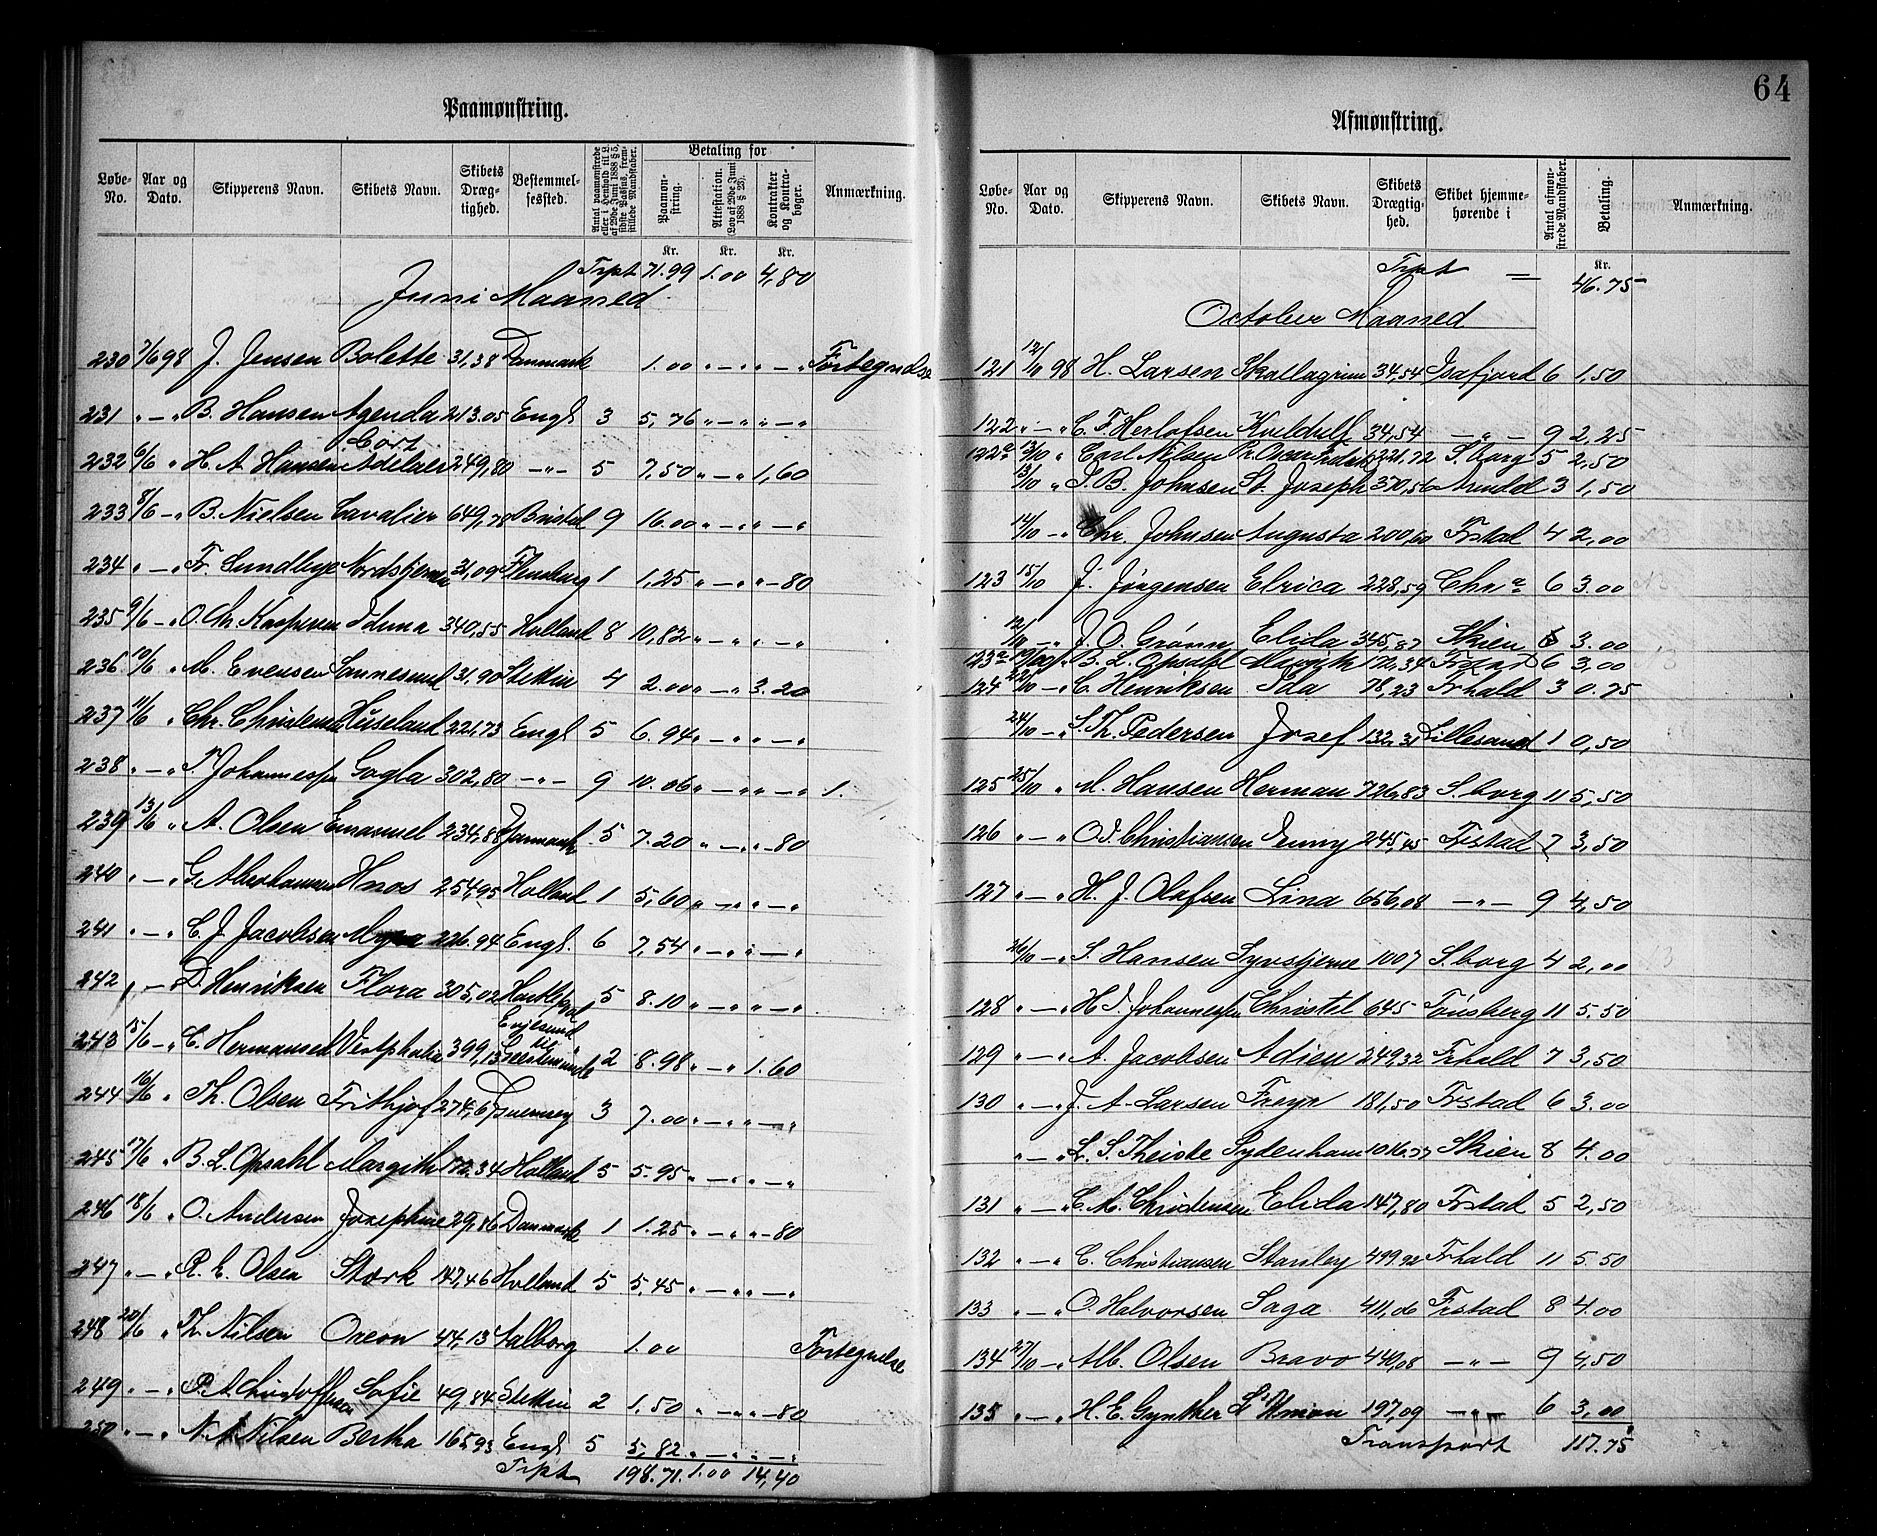 64
Paamønstring.
Løbe-No. Aar og Dato. Skipperens Navn. Skibets Navn. Skibets Dræg-tighed. Bestemmel-sessted. Antal paamønstrede eller i Henhold til L. af 29de Juni 1888 § 5, sidste Passus, frem-stillede Mandskaber. Betaling for Paamøn-string. Attestation. (Lov af 29de Juni 1888 § 25). Kontrakter og Kontra-bøger. Anmærkning.
Kr. Kr. Kr.
Trpt 71.99 1.00 4,80
Juni Maaned
230 7/6 98 J. Jensen Bolette 31,38 Danmark 1.00 " — " " — " Fortegnelse
231 " — " B. Hansen Agenda 213.05 Engl 3 5,76 " — " " — "
232 6/6 " H. A. Hansen Cort Adelaer 249,80 — " — 5 7,50 " — " 1,60
233 8/6 — " B. Nielsen Cavalier 649,78 Bristol 9 16.00 " — " " — "
234 " — " Fr. Lundbye Nordstjernen 31,09 Flensburg 1 1,25 " — " " — 80
235 9/6 — " O. Chr. Kaspersen Iduna 340,55 Holland 8 10,82 " — " " — "
236 10/6 " M. Evensen Sannesund 31,90 Stettin 4 2.00 " — " 3.20
237 11/6 " Chr. Christensen Huseland 221,73 Engl 5 6.94 " — " " — "
238 " — " T. Johannessen Gogla 302,80 — " — 9 10.06 " — " " — " 1.
239 13/6 " A. Olsen Emanuel 234,88 Danmark 5 7.20 " — " " — 80
240 " — " G. Abrahamsen Hnos 254,95 Holland 1 5,60 " — " " — "
241 " — " C. J. Jacobsen Myra 226.94 Engl. 6 7,54 " — " " — "
242 " — D. Henriksen Flora 305,02 Hartlepool 5 8.10 " — " " — "
243 15/6 — " C. Hermansen Westphalia 399,13 Enjesund til Geestemünde 2 8.98 " — " 1.60
244 16/6 " Th. Olsen Frithjof 274,67 Guernsey 3 7.00 " — " " — "
245 17/6 " B. L. Opsahl Margith 172.34 Holland 5 5.95 " — " " — "
246 18/6 " O. Andersen Josephine 29,86 Danmark 1 1.25 " — " " — 80
247 " — " R. E. Olsen Stærk 147,46 Holland 5 5,45 " — " " — "
248 20/6 " Th. Nilsen Oreon 44,15 Aalborg 1.00 Fortegnelse
249 " — " P. A. Christoffersen Sofie 49,84 Stettin 2 1.50 " — " " — 80
250 " — " N. A. Nilsen Bertha 165,93 Engl 5 5,82 " — " " — "
Trpt 198.71. 1.00 14,40
Afmønstring.
Løbe-No. Aar og Dato. Skipperens Navn. Skibets Navn. Skibets Drægtig-hed. Skibet hjemme-hørende i Antal afmøn-strede Mandskaber. Betaling. Anmærkning.
Kr.
Trpt = 46.75
October Maaned
121 12/10 98 H. Larsen Skallagrim 34,54 Isafjord 6 1,50
122 " — " C. F. Herlofsen Kveldulf 34,54 — " — 9 2,25
122a 13/10 " Carl Nilsen Pr. Oscar 221,72 S.borg 5 2,50
13/10 " S. B. Johnsen St. Joseph 370,56 Arendal 3 1,50
14/10 — " Chr. Johnsen Augusta 200,60 Frstad 4 2,00
123 15/10 J. Jørgensen Elrica 228,59 Chr a 6 3.00
12/10 — " J. O. Grønn Elida 345,87 Skien 6 3.00
123a 19/10 " B. L. Opsahl Margith 172,34 Frstad 6 3,00
124 22/10 — " C. Henriksen Ida 78,23 Frhald 3 0.75
24/10 — " S. Th. Pedersen Josef 132,31 Lillesand 1 0,50
125 25/10 " M. Hansen Herman 726,83 S.borg 11 5,50
126 " — " O. J. Christiansen Jenny 245,45 Frstad 7 3,50
127 " — " H. J. Olafsen Lina 656,08 — " — 9 4,50
26/10 — " S. Hansen Syvstjerne 1007 S.borg 4 2,00
128 " — " H. J. Johannessen Christel 645 Tønsberg 11 5.50
129 " — " A. Jacobsen Adien 249,32 Frhald 7 3,50
130 " — " J. A. Larsen Freyr 181,50 Frstad 6 3.00
" — " L. S. Theiste Sydenham 1016.77 Skien 8 4.00
131 " — " C. A. Christensen Elida 147,80 Frstad 5 2,50
132 " — " C. Christiansen Stanley 499.92 Frhald 11 5.50
133 " — " O. Halvorsen Saga 411,06 Frstad 8 4.00
134 27/10 — " Alb. Olsen Bravo 440,08 — " — 9 4,50
135 " — " H. E. Gynther Union 197,09 — " — 6 3,00
Transport 117.75